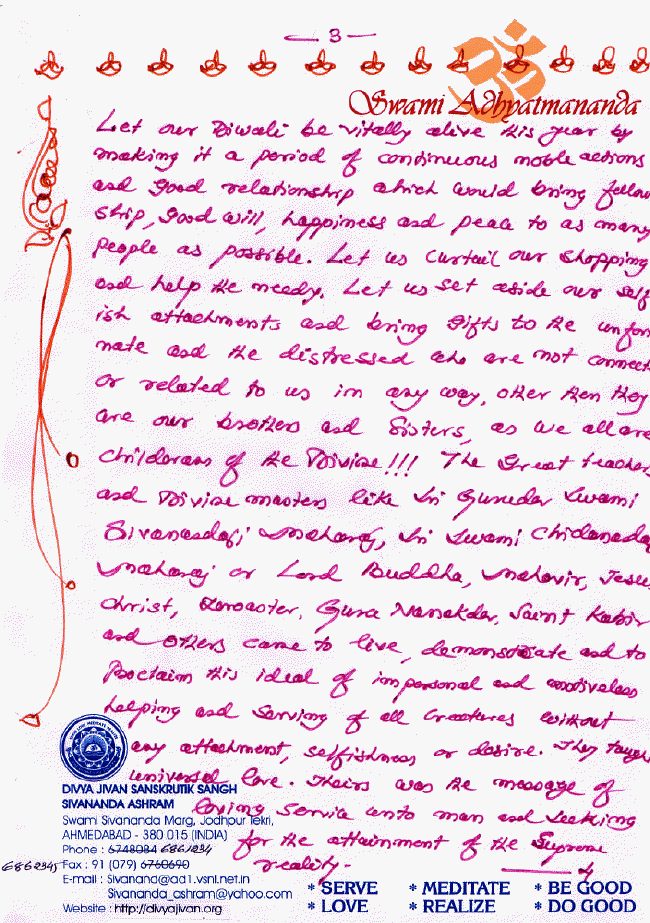 — 3 —
Swami Adhyatmananda
Let our Diwali be vitally alive this year by
making it a period of continuous noble actions
and good relationship which would bring fellow
ship, good will, happiness and peace to as many
people as possible. Let us curtail our shopping
and help the needy. Let us set aside our self
ish attachments and bring gifts to the unfor
nate and the distressed who are not connect
or related to us in any way, other then they
are our brothers and sisters, as we all are
childorans of the Divine!!! The Great teachers
and Divine masters like Sri Gurudev Swami
Sivanandaji Maharaj, Sri Swami Chidananda
Maharaj or Lord Buddha, Mahavir, Jesus
Christ, Zoroaster, Guru Nanakdev, Saint Kabir
and others came to live, demonstrate and to
Proclaim this ideal of impersonal and motiveless
helping and serving of all Creatures without
any attachment, selfishness or desire. They taught
universal love. Theirs was the message of
loving Service unto man and seeking
for the attainment of the Supreme
reality.
4
DIVYA JIVAN SANSKRUTIK SANGH
SIVANANDA ASHRAM
Swami Sivananda Marg, Jodhpur Tekri,
AHMEDABAD - 380 015 (INDIA)
Phone : 6748084 6861234
6862345 Fax : 91 (079) 6760690
E-mail : Sivanand@ad1.vsnl.net.in
Sivananda_ashram@yahoo.com
Website : http://divyajivan.org
* SERVE * MEDITATE * BE GOOD
* LOVE * REALIZE * DO GOOD